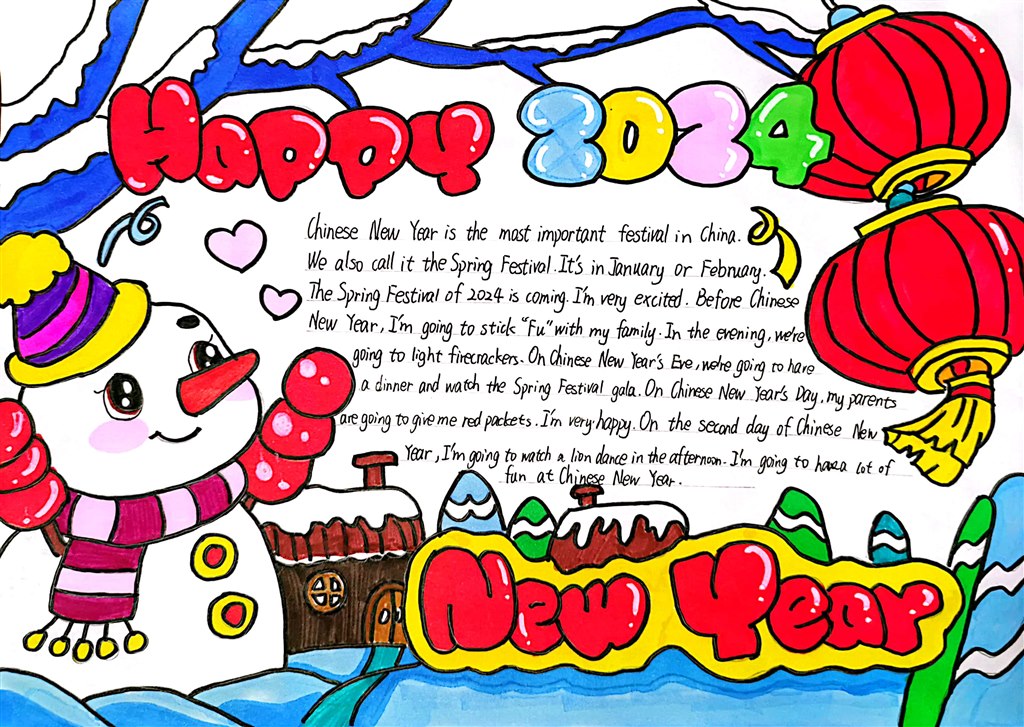 Happy 2024
Chinese New Year is the most important festival in China.
We also call it the Spring Festival. It's in January or February.
The Spring Festival of 2024 is coming. I'm very excited. Before Chinese
New Year, I'm going to stick "Fu" with my family. In the evening, we're
going to light firecrackers. On Chinese New Year's Eve, we're going to have
a dinner and watch the Spring Festival gala. On Chinese New Year's Day, my parents
are going to give me red packets. I'm very happy. On the second day of Chinese New
Year, I'm going to watch a lion dance in the afternoon. I'm going to have a lot of
fun at Chinese New Year.
New Year